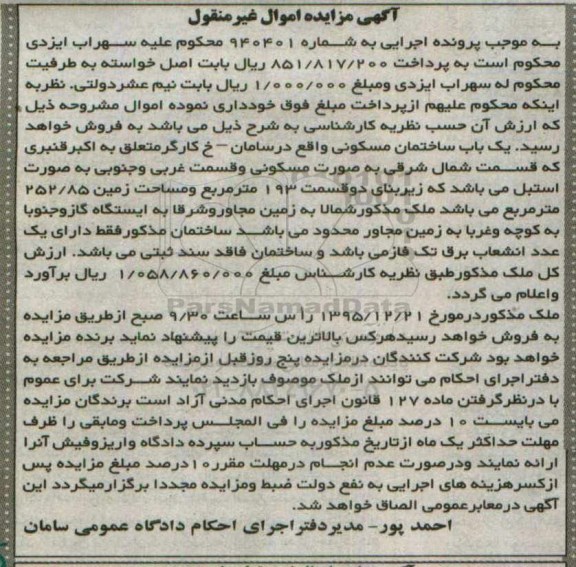 آگهی مزایده اموال غیرمنقول
به موجب پرونده اجرایی به شماره ۹۴۰۴۰۱ محکوم علیه سهراب ایزدی
محکوم است به پرداخت ۸۵۱/۸۱۷/۲۰۰ ریال بابت اصل خواسته به طرفیت
محکوم له سهراب ایزدی ومبلغ ۱/۰۰۰/۰۰۰ ریال بابت نیم عشردولتی. نظربه
اینکه محکوم علیهم ازپرداخت مبلغ فوق خودداری نموده اموال مشروحه ذیل
که ارزش آن حسب نظریه کارشناسی به شرح ذیل می باشد به فروش خواهد
رسید. یک باب ساختمان مسکونی واقع درسامان – خ کارگرمتعلق به اکبرقنبری
که قسمت شمال شرقی به صورت مسکونی وقسمت غربی وجنوبی به صورت
استبل می باشد که زیربنای دوقسمت ۱۹۳ مترمربع ومساحت زمین ۲۵۲/۸۵
مترمربع می باشد ملک مذکورشمالا به زمین مجاوروشرقا به ایستگاه گازوجنوبا
به کوچه وغربا به زمین مجاور محدود می باشد ساختمان مذکورفقط دارای یک
عدد انشعاب برق تک فازمی باشد و ساختمان فاقد سند ثبتی می باشد. ارزش
کل ملک مذکورطبق نظریه کارشناس مبلغ ۱/۰۵۸/۸۶۰/۰۰۰ ریال برآورد
واعلام می گردد.
ParsNamadData
ملک مذکوردرمورخ ۱۳۹۵/۱۲/۲۱ راس ساعت ۹/۳۰ صبح ازطریق مزایده
به فروش خواهد رسیدهرکس بالاترین قیمت را پیشنهاد نماید برنده مزایده
خواهد بود شرکت کنندگان درمزایده پنج روزقبل ازمزایده ازطریق مراجعه به
دفتراجرای احکام می توانند ازملک موصوف بازدید نمایند شرکت برای عموم
با درنظرگرفتن ماده ۱۲۷ قانون اجرای احکام مدنی آزاد است برندگان مزایده
می بایست ۱۰ درصد مبلغ مزایده را فی المجلس پرداخت ومابقی را ظرف
مهلت حداکثر یک ماه ازتاریخ مذکوربه حساب سپرده دادگاه واریزوفیش آنرا
ارائه نمایند ودرصورت عدم انجام درمهلت مقرر۱۰درصد مبلغ مزایده پس
ازکسرهزینه های اجرایی به نفع دولت ضبط ومزایده مجددا برگزارمیگردد این
آگهی درمعابرعمومی الصاق خواهد شد.
احمد پور- مدیردفتراجرای احکام دادگاه عمومی سامان